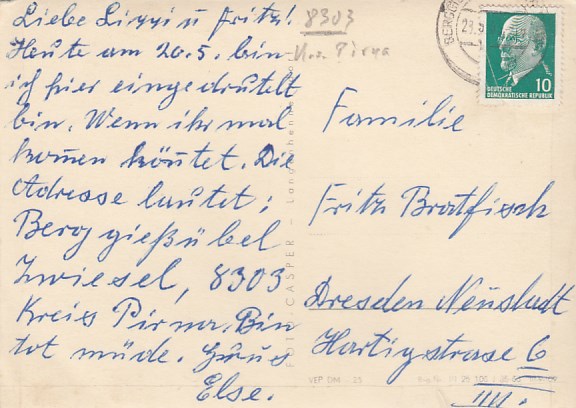 Liebe Lizzi u Fritz!
Heute am 20.5. bin
ich hier eingedrutelt
bin. Wenn ihr mal
komen köntet. Die
Adresse lautet:
Berg gießübel
Zwiesel, 8303
Kreis Pirna. Bin
tot müde. Gruß
Else.
8303
Krs. Pirna
BERGG
DEUTSCHE
DEMOKRATISCHE REPUBLIK
10
Familie
Fritz Bratfisch
Dresden Neustadt
Hartigstrase 6
IIII.
FOTO: CASPER -
VEB DM 25